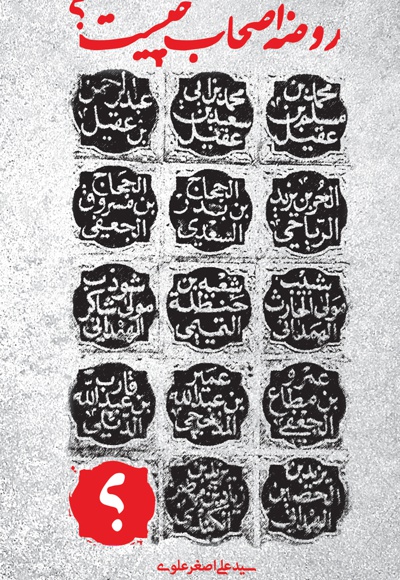 روضه اصحاب چیست؟
محمد بن
مسلم بن
عقیل
محمد بن ابی
سعید بن
عقیل
عبدالرحمن
بن عقیل
الحر بن یزید
الریاحی
الحجاج
بن بدر
السعدی
الحجاج
بن مسروق
الجعفی
شبیب
مولی الحارث
الهمدانی
بن
حنظلة
التمیمی
شوذب
مولی شاکر
الهمدانی
بن مطاع
الجعفی
عمیر
بن عبدالله
المذحجی
قارب
بن عبدالله
الدیلی
یزید بن
الحصین
یزید بن
زیاد بن
الکندی
؟
سید علی اصغر علوی